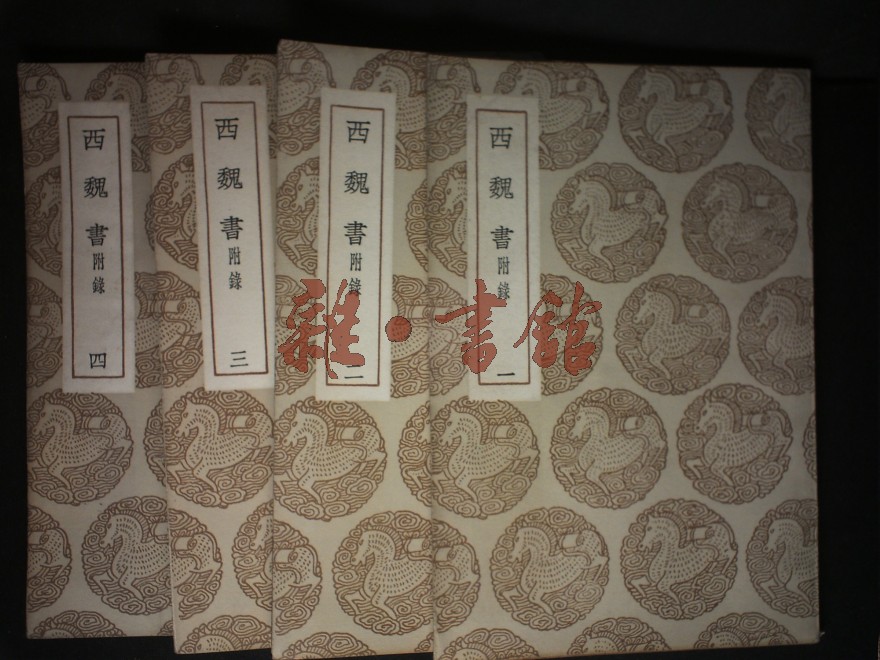 西魏書附錄 一
西魏書附錄 二
西魏書附錄 三
西魏書附錄 四
雜·書館